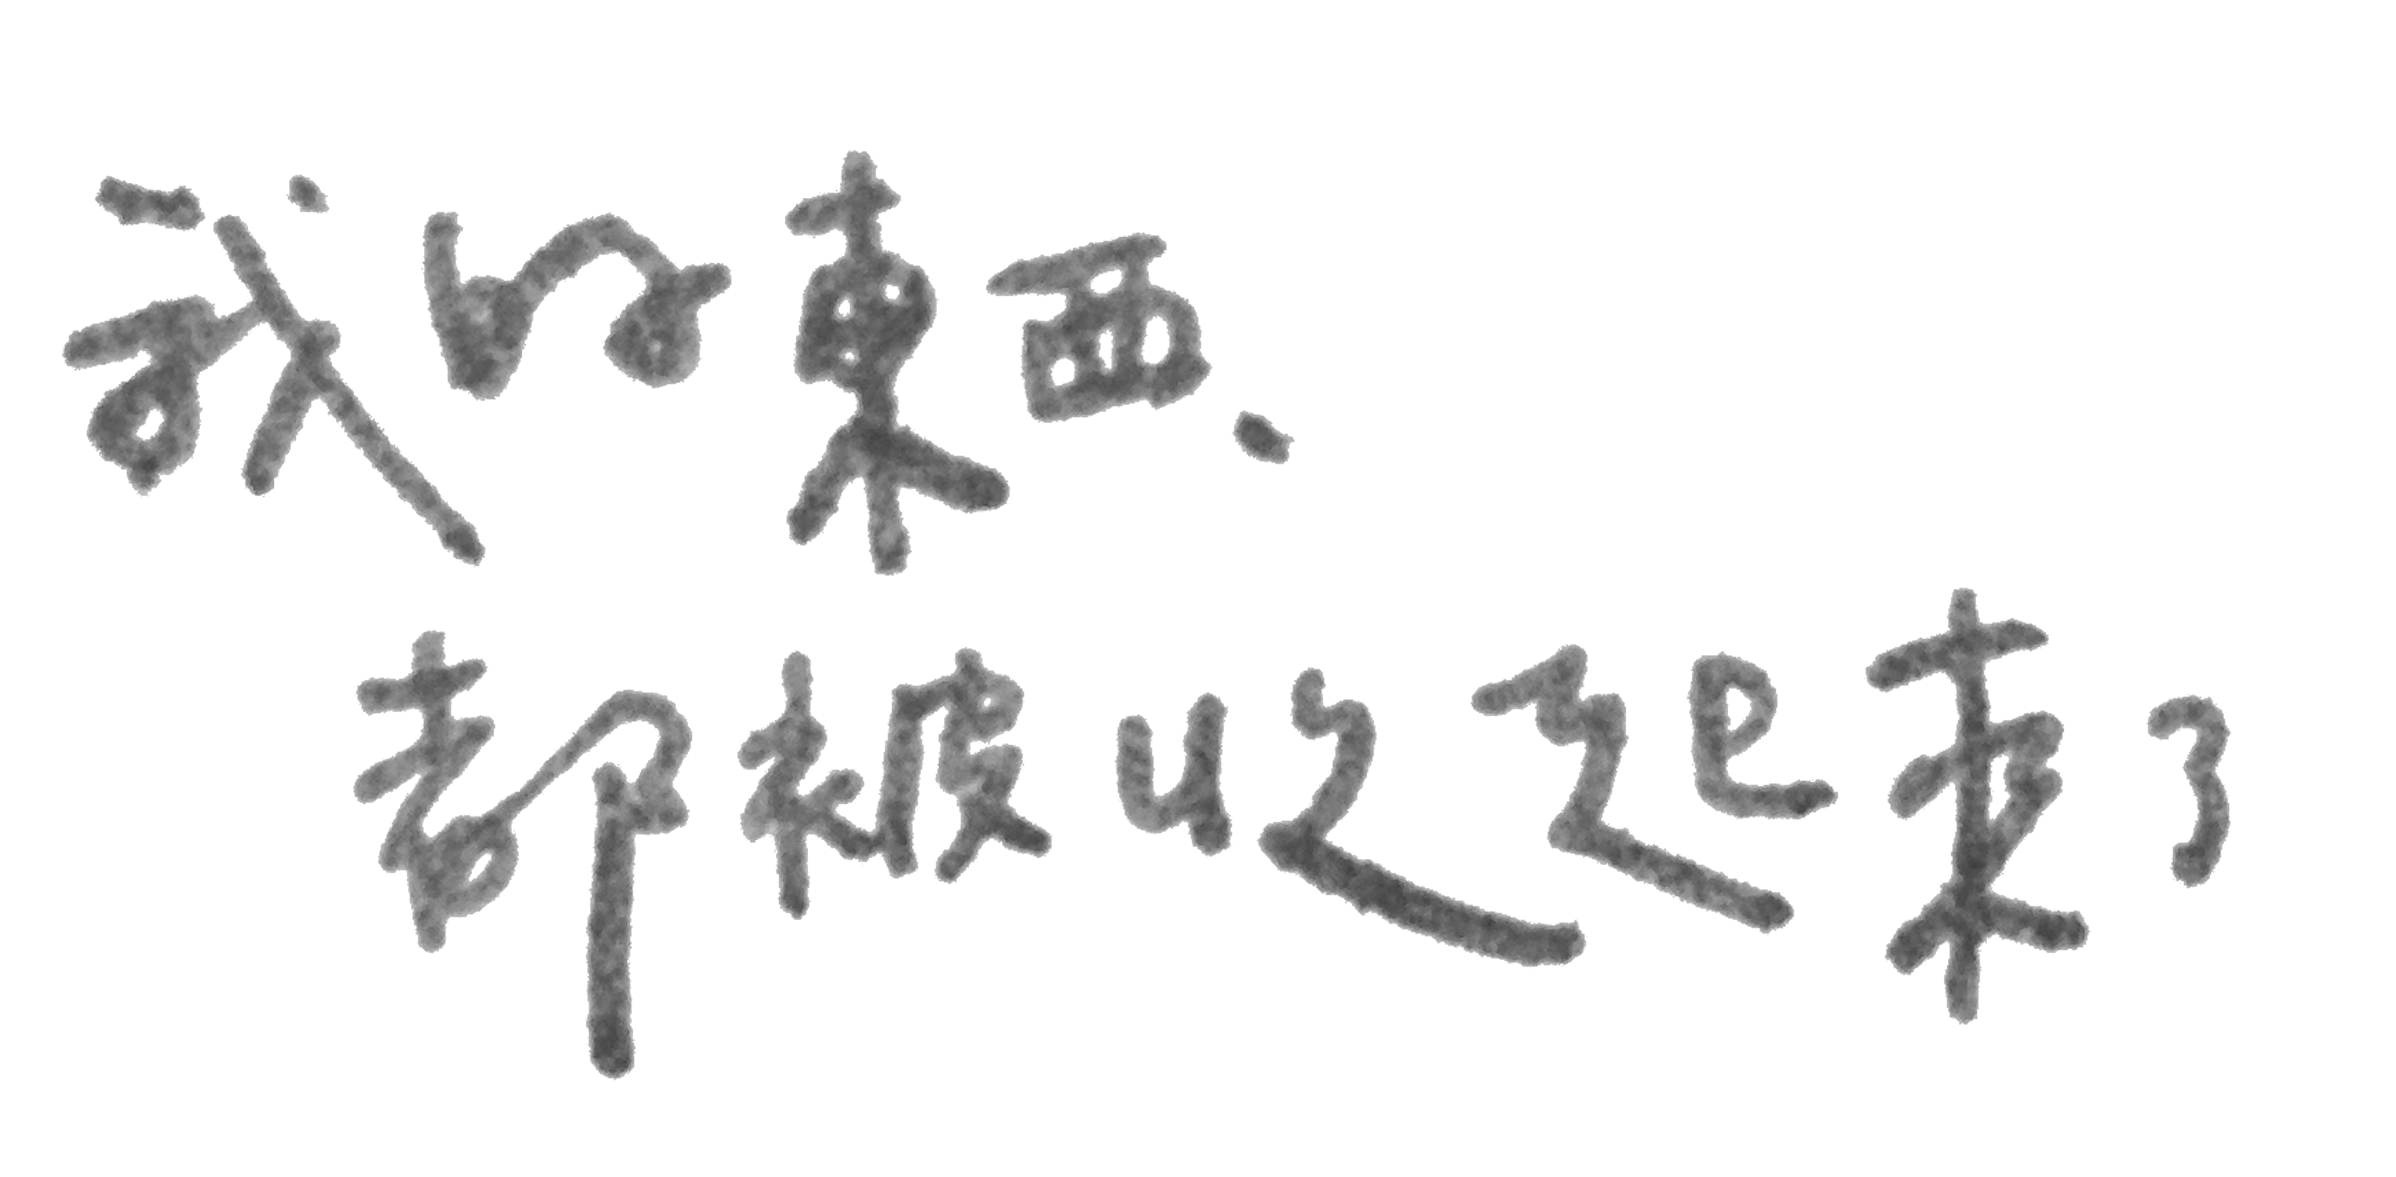 我的東西、
都被收起來了